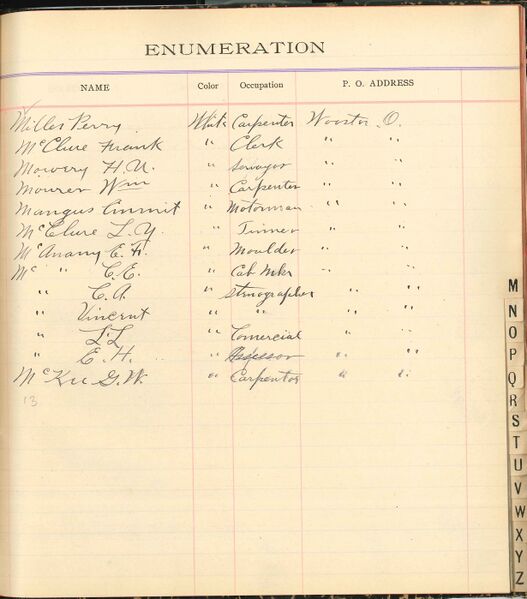 ENUMERATION
NAME Color Occupation P. O. ADDRESS
Miller Perry White Carpenter Wooster O.
McClure Frank " Clerk " "
Mowery H. U. " Surveyor " "
Mourer Wm " Carpenter " "
Mangus Emmit " Motorman " "
McClure L. Y. " Tinner " "
McAnany E. F. " Moulder " "
Mc " C. E. " Cab Mkr " "
" C. A. " Stenographer " "
" Vincent " " " "
" L. L. " Comercial " "
" E. H. " Assessor " "
McKee G. W. " Carpenter " "
13
M
N
O
P
Q
R
S
T
U
V
W
X
Y
Z